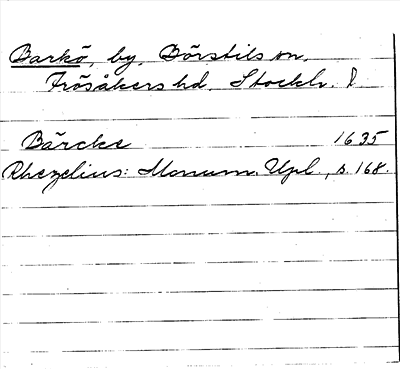 Barkö, by, Börstils sn,
Frösåkers hd. Stockh.
Bärcke 1635
Rhezelius: Monum. Upl., s. 168.